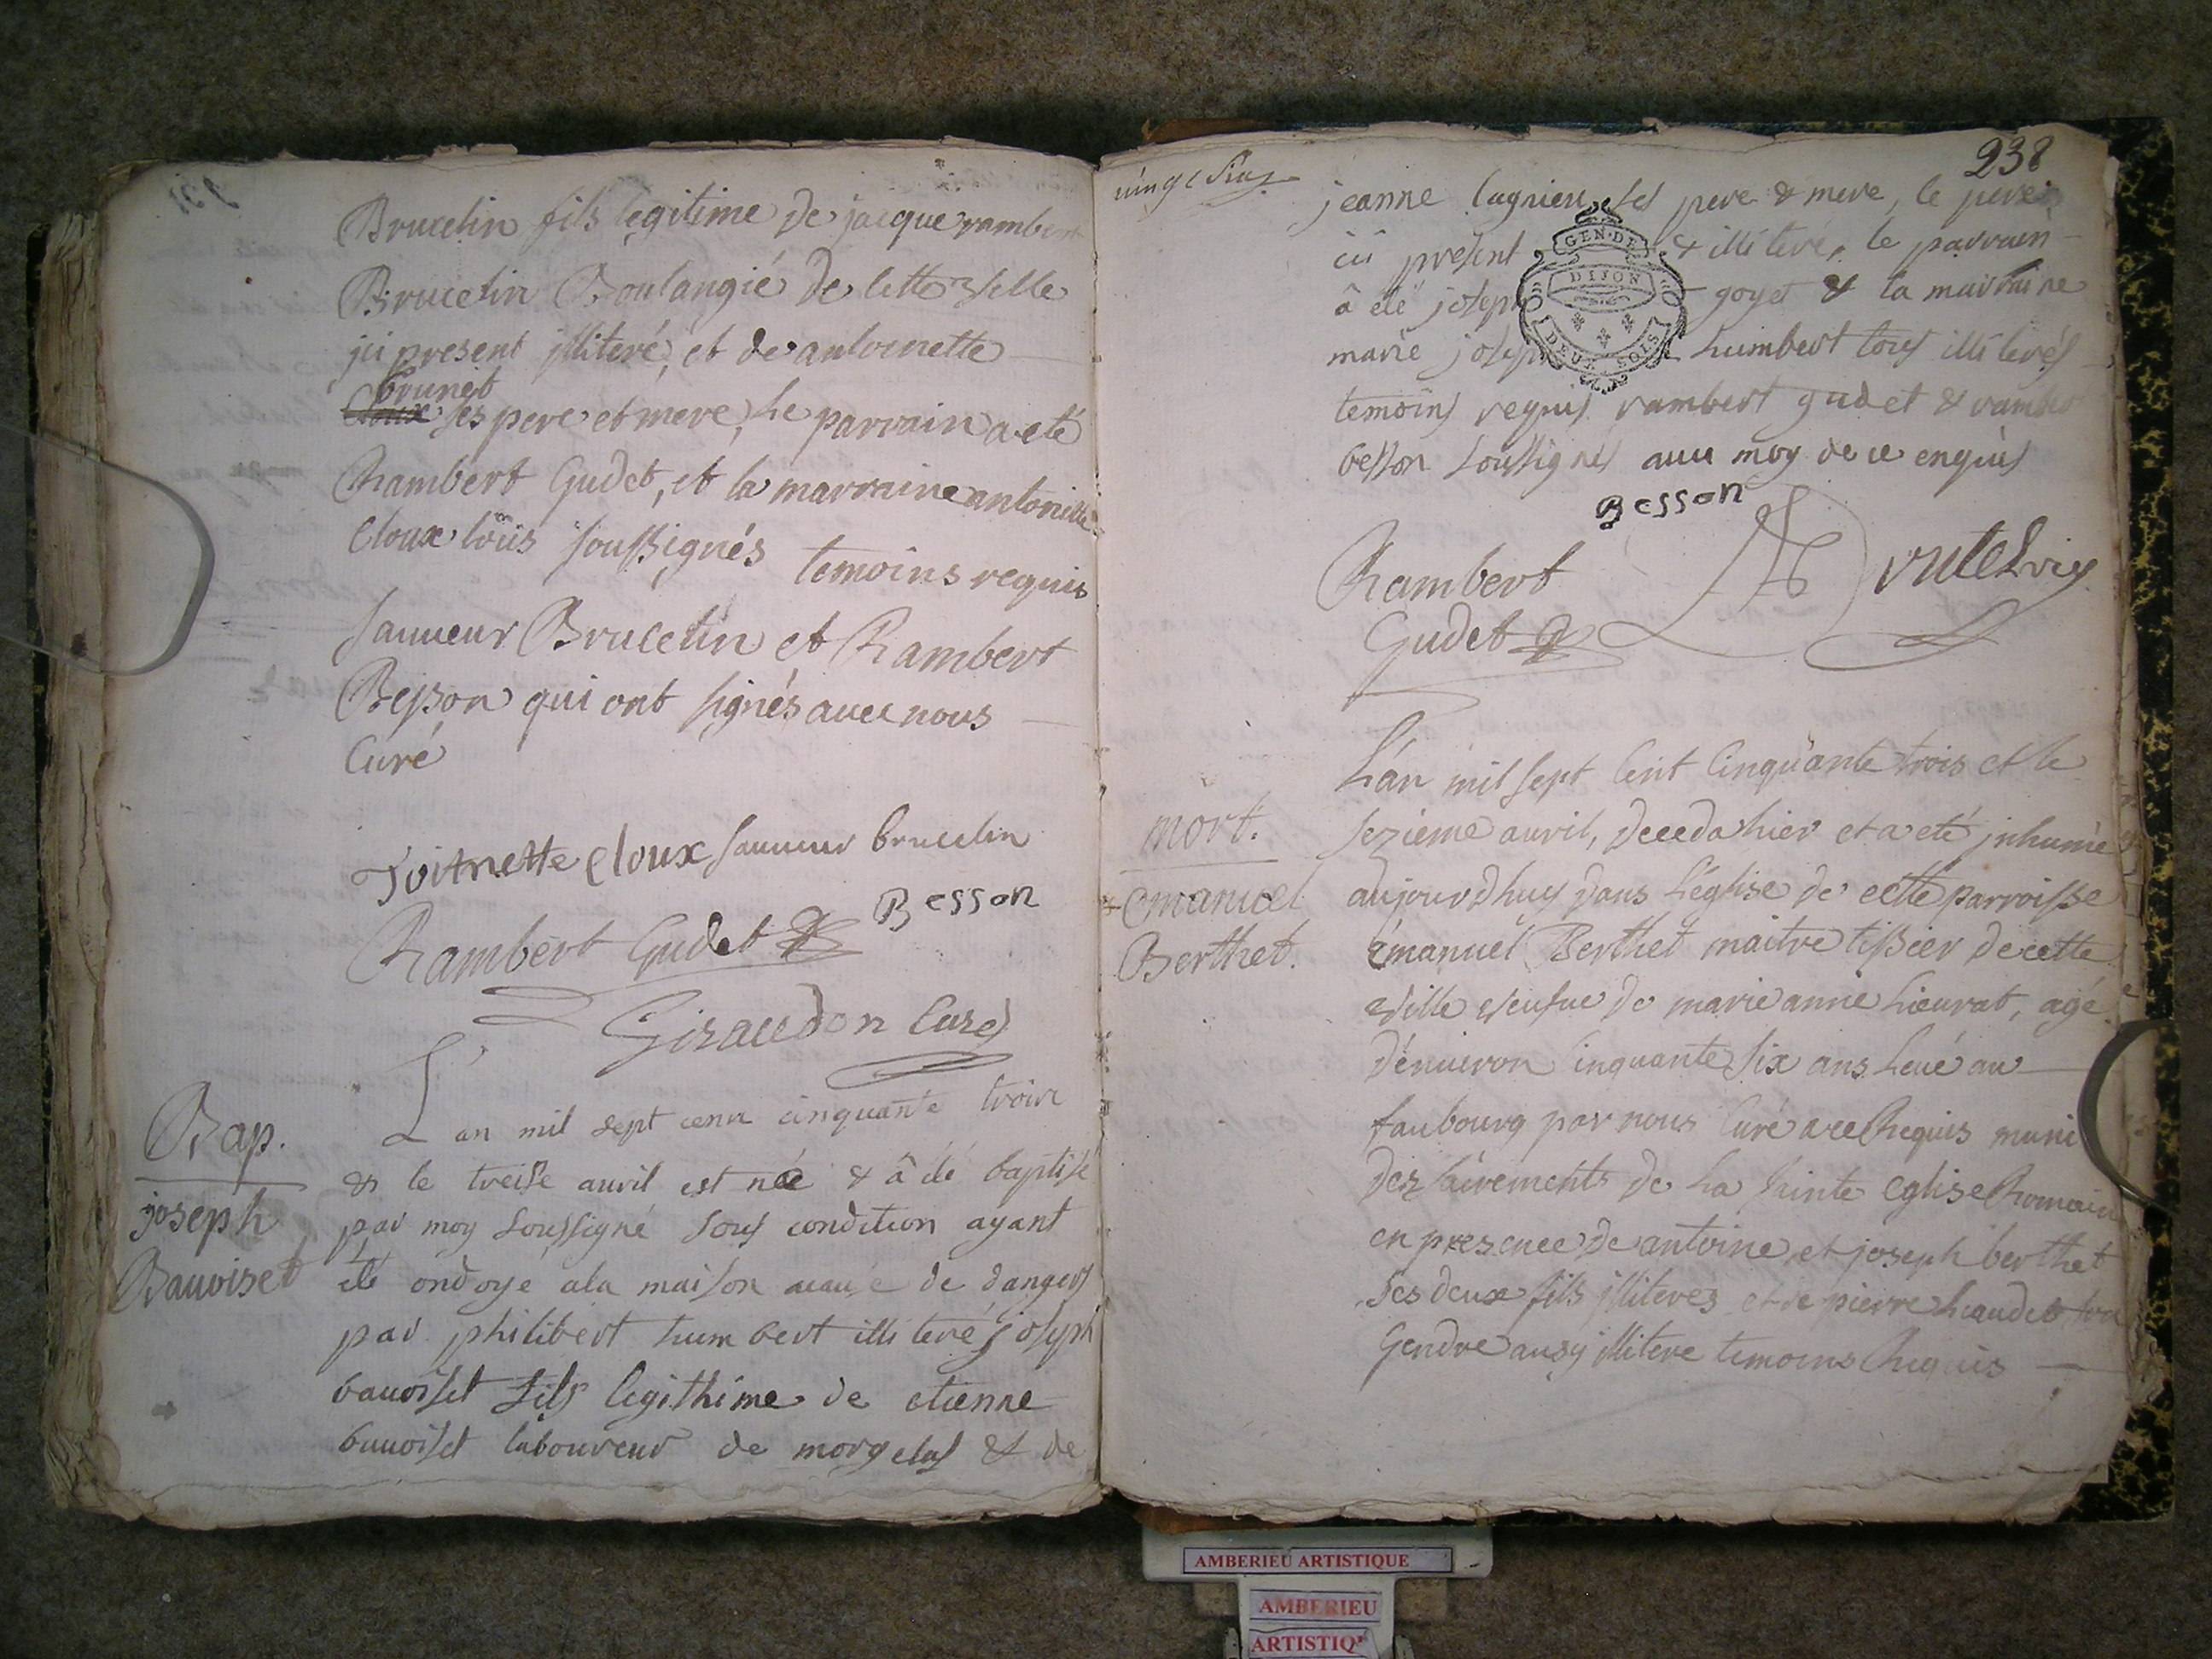 Brucelin fils legitime de jacque rambert
Brucelin Boulangié de cette ville
ici present illiteré, et de antoinette
brunet
Cloux ses pere et mere, Le parrain a eté
Rambert Gudet, et la marraine antoinette
Cloux tous soussignés temoins requis
sauueur Brucelin et Rambert
Besson qui ont signés auec nous
Curé
Toitnette cloux sauueur brucelin
Besson
Rambert Gudet
Giraudon Curé
Bap.
joseph
Bauoiset
L'an mil sept cent cinquante trois
& le treise auril est né & â été baptisé
par moy soussigné sous condition ayant
été ondoyé a la maison a cause de dangers
par philibert humbert illiteré joseph
bauoiset fils legithime de etienne
bauoiset laboureur de morgelas & de
238
vingt six
jeanne lagnieu ses pere & mere, le pere
ici present & illiteré, le parrain
â été joseph goyet & la mairraine
marie joseph humbert tous illiterés
temoins requis rambert gudet & rambert
besson soussignés auec moy de ce enquis
GEN·DE
DIJON
DEUX SOLS
Besson
Rambert
Gudet
mort.
emanuel
Berthet.
L'an mil sept Cent Cinquante trois et le
sezieme auril, deceda hier et a eté jnhumé
aujourdhuy dans L'église de cette parroisse
Emanuel Berthet maitre tissier de cette
ville veufue de marie anne Lieurat, agé
d'enuiron Cinquante six ans Leué au
faubourg par nous Curé a ce Requis muni
des sacrements de La sainte eglise Romaine
en presence de antoine et joseph berthet
ses deux fils jlliterés et de pierre
Gendre ausy jllitere temoins Requis
AMBERIEU ARTISTIQUE
AMBERIEU
ARTISTIQ